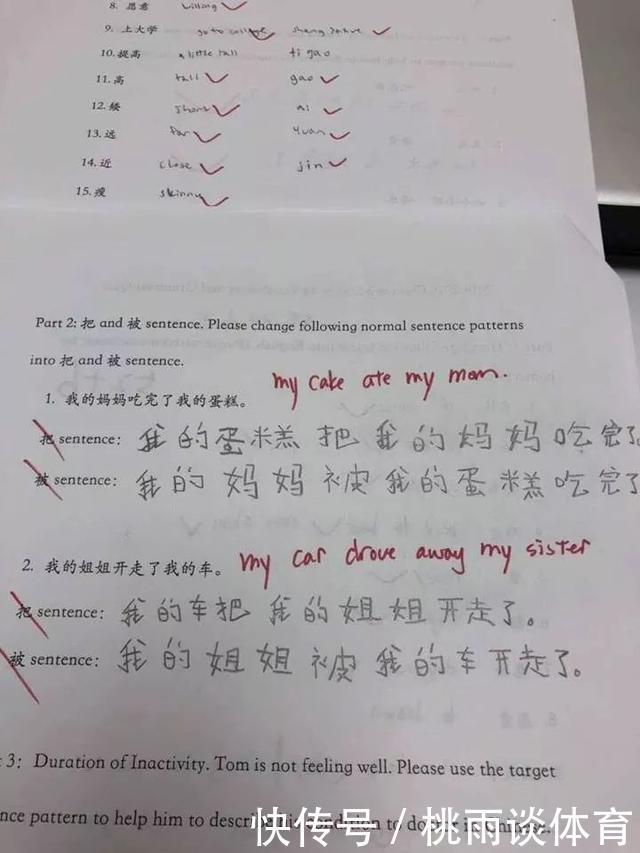 8. 愿意 willing
9. 上大学 go to college
10. 提高 a little tall ti gao
11. 高 tall gao
12. 矮 short ai
13. 远 far yuan
14. 近 close jin
15. 瘦 skinny
Part 2: 把 and 被 sentence. Please change following normal sentence patterns
into 把 and 被 sentence.
my cake ate my mom.
1. 我的妈妈吃完了我的蛋糕。
把 sentence: 我的蛋糕把我的妈妈吃完了
被 sentence: 我的妈妈被我的蛋糕吃完了
my car drove away my sister
2. 我的姐姐开走了我的车。
把 sentence: 我的车把我的姐姐开走了。
被 sentence: 我的姐姐被我的车开走了。
3: Duration of Inactivity. Tom is not feeling well. Please use the target
nce pattern to help him to describe his condition to
快传号 / 桃雨谈体育